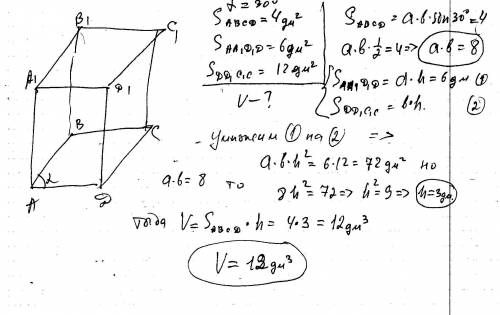 B₁
C₁
A₁
D₁
B
C
A
α
D
S_ABCD = 4 дм²
S_AA₁D₁D = 6 дм²
S_DD₁C₁C = 12 дм²
V – ?
S_ABCD = a·b·sin 30° = 4
a·b·½ = 4 => a·b = 8
S_AA₁D₁D = a·h = 6 дм ①
S_DD₁C₁C = b·h. ②
Умножим ① на ② =>
a·b·h² = 6·12 = 72 дм² но
a·b = 8 то 8h² = 72 => h² = 9 => h = 3 дм.
тогда V = S_ABCD · h = 4·3 = 12 дм³
V = 12 дм³